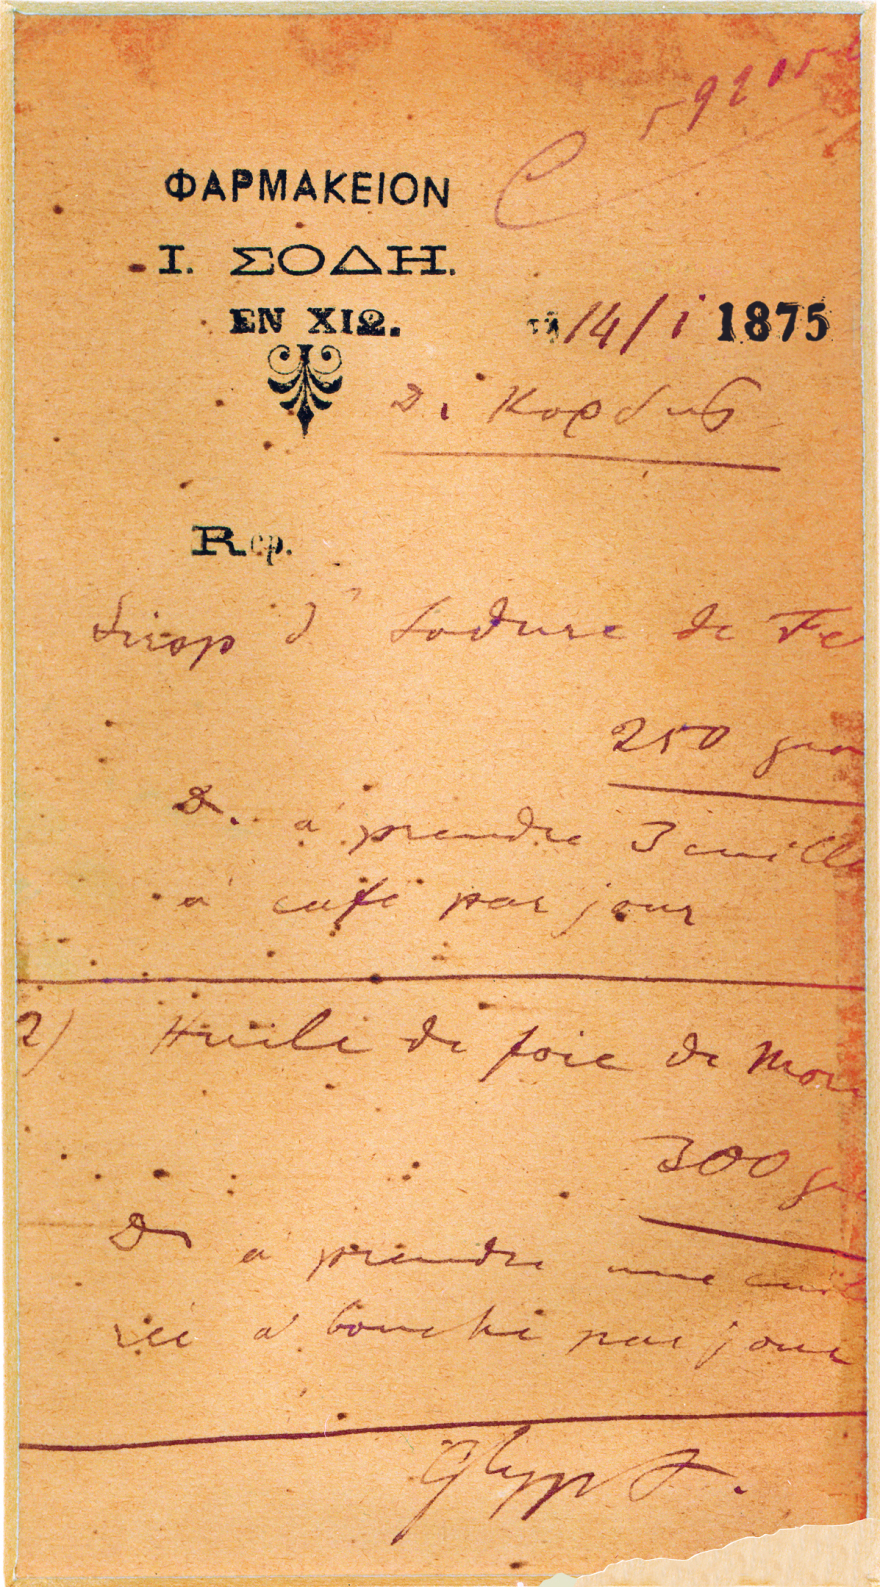 59215
ΦΑΡΜΑΚΕΙΟΝ
Ι. ΣΟΔΗ.
ΕΝ ΧΙΩ.
τῇ 14/i 1875
Δι Κορδης
Rcp.
Sirop d' Iodure de Fe
250 gra
D. a prendre 3 cuille
a' café par jour
2) Huile de foie de Mor
300 gr
D a prendre une cuil
reé a' bouche par jour
Glypt.